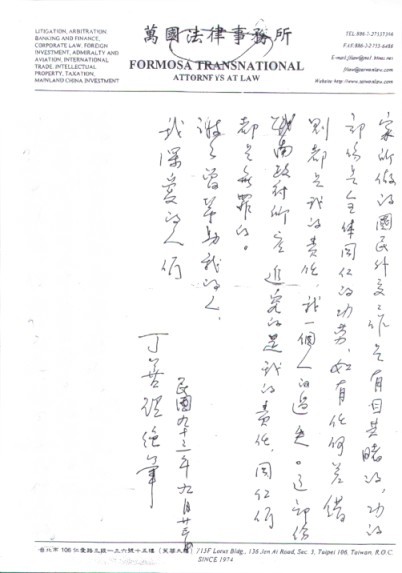 LITIGATION, ARBITRATION
BANKING AND FINANCE,
CORPORATE LAW, FOREIGN
INVESTMENT, ADMIRALTY AND
AVIATION, INTERNATIONAL
TRADE, INTELLECTUAL
PROPERTY, TAXATION,
MAINLAND CHINA INVESTMENT
萬國法律事務所
FORMOSA TRANSNATIONAL
ATTORNEYS AT LAW
TEL:886-2-27557366
FAX:886-2-2755-6486
家所做的國民外交工作是有目共睹的,功的
部份是全體同仁的功勞,如有任何差錯
則都是我的責任,我一個人的過失。這部份
政府
要追究的是我的責任,同仁們
都是無罪的。
謝謝曾幫助我的人,
我深愛的人們
丁善理絕筆
民國九十三年九月廿
台北市106仁愛路三段一三六號十五樓(芙蓉大樓)/15F Lotus Bldg., 136 Jen Ai Road, Sec. 3, Taipei 106, Taiwan, R.O.C.
SINCE 1974